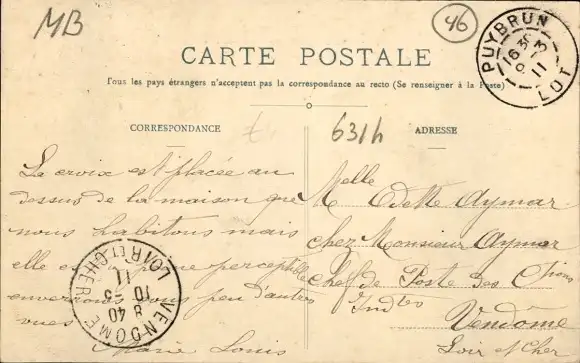 MB
46
CARTE POSTALE
Tous les pays étrangers n'acceptent pas la correspondance au recto (Se renseigner à la Poste)
PUYBRUN
16 30
3
11
LOT
CORRESPONDANCE
631h
ADRESSE
La croix est placée au
dessus de la maison que
nous habitons mais
elle perceptible
enverrons peu d'autres
vues
Marie Louis
Melle Odette Aymar
chez Monsieur Aymar
Chef de Poste des Ctions
Indtes
Vendôme
Loir et Cher
VENDOME
8 40
10 -3
11
LOIR ET CHER